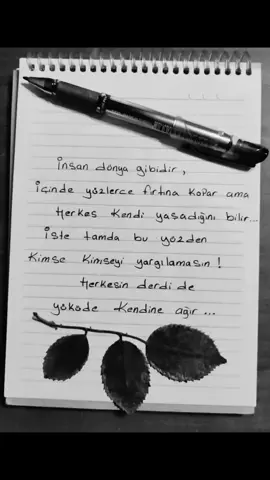 İnsan dünya gibidir,
içinde yüzlerce fırtına kopar ama
Herkes kendi yaşadığını bilir...
İşte tamda bu yüzden
Kimse Kimseyi yargılamasın!
Herkesin derdi de
yüküde kendine ağır...